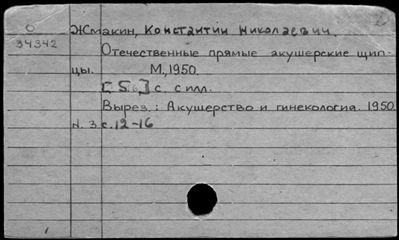 О
34342
Жмакин, Константин Николаевич.
Отечественные прямые акушерские щип-
цы. М., 1950.
[5] с. с илл.
Вырез.: Акушерство и гинекология. 1950.
N. 3. с. 12-16